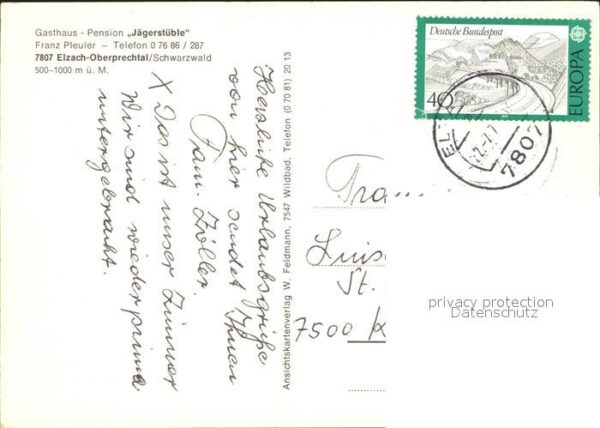 Gasthaus - Pension „Jägerstüble"
Franz Pleuler – Telefon 0 76 86 / 287
7807 Elzach-Oberprechtal/Schwarzwald
500–1000 m ü. M.
Herzliche Urlaubsgrüße
von hier sendet Ihnen
Fam. Zöller.
X Das ist unser Zimmer
Wir sind wieder prima
untergebracht.
Ansichtskartenverlag W. Feldmann, 7547 Wildbad, Telefon (0 70 81) 20 13
Deutsche Bundespost
40
EUROPA
7807
Luise
St.
7500
privacy protection
Datenschutz